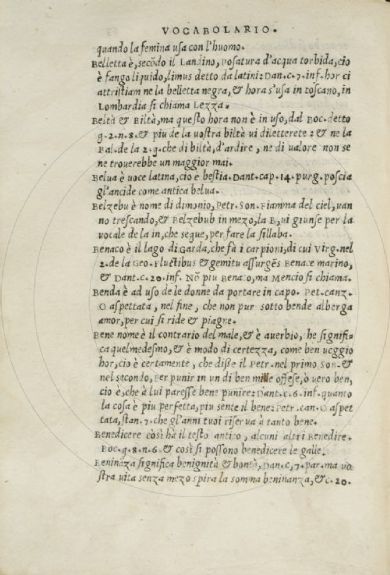 VOCABOLARIO.
quando la femina usa con l'huomo.
Belletta è, secõdo il Landino, posatura d'acqua torbida, cio
è fango liquido, limus detto da latini: Dan. c. 7. inf. hor ci
attristiam ne la belletta negra, & hora s'usa in toscano, in
Lombardia si chiama Lezza.
Beltà & Biltà, ma questo hora non è in uso, dal Boc. detto
q. 2. n. 8. & piu de la uostra biltà ui diletterete: & ne la
Bal. de la 2. q. che di biltà, d'ardire, ne di ualore non se
ne trouerebbe un maggior mai.
Belua è uoce latina, cio è bestia. Dant. cap. 14. purg. poscia
gl'ancide come antica belua.
Belzebu è nome di dimonio, Petr. Son. Fiamma del ciel, uan
no trescando, & Belzebub in mezo, la B, ui giunse per la
uocale de la in, che seque, per fare la sillaba.
Benaco è il lago di Garda, che fà i carpioni, di cui Virg. nel
2. de la Geo. Fluctibus & gemitu assurgẽs Benace marino,
& Dant. c. 20. inf. Nõ piu Benaco, ma Mencio si chiama.
Benda è ad uso de le donne da portare in capo. Pet. canz.
O aspettata, nel fine, che non pur sotto bende alberga
amor, per cui si ride & piagne.
Bene nome è il contrario del male, & è auerbio, he significa
quel medesmo, & è modo di certezza, come ben ueggio
hor, cio è certamente, che disse il Petr. nel primo Son. &
nel secondo, Per punir in un di ben mille offese, ò uero ben,
cio è, che à lui paresse bene punire: Dant: c. 6. inf. quanto
la cosa è piu perfetta, piu sente il bene: Petr. can. O aspet
tata, stan. 7. che gl'anni tuoi riserua à tanto bene.
Benedicere così hà il testo antico, alcuni altri Benedire.
Boc. q. 8. n. 6. & così si possono benedicere le galle.
Beninãza significa benignità & bontà, Dan. c, 7. par. ma uo
stra uita senza mezo spira la somma beninanza, & c. 20.